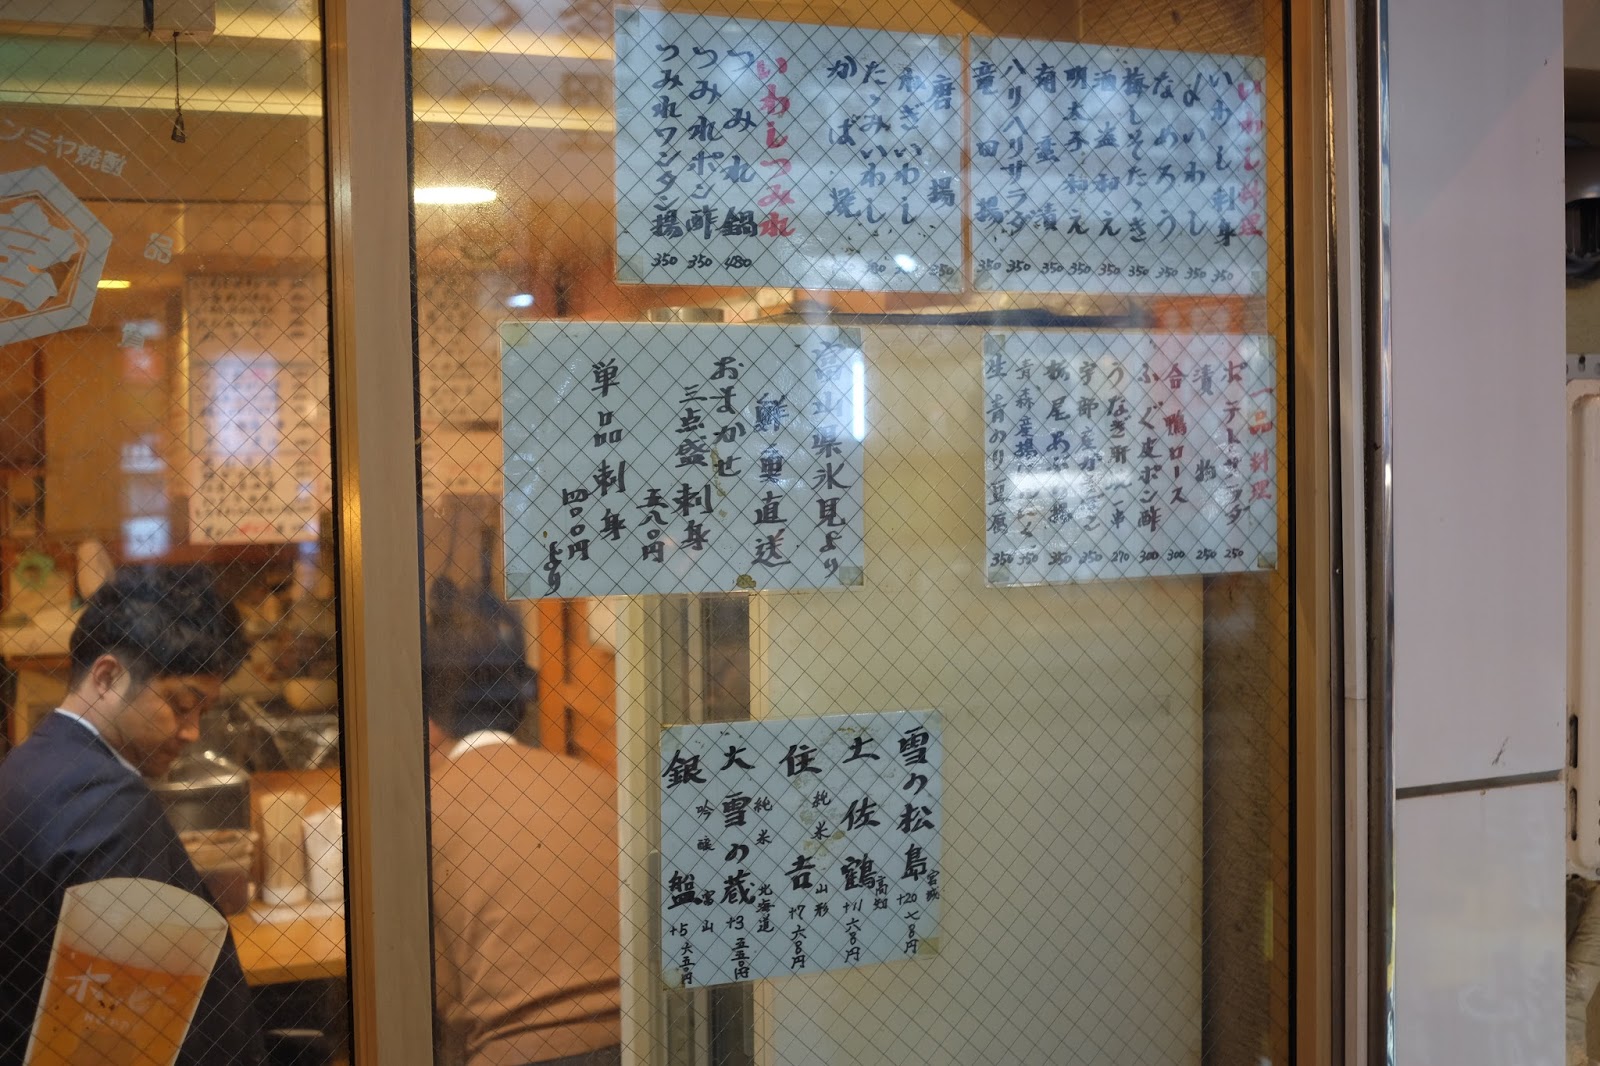 いわし料理
いわし刺身 350
よいわし 350
なめろう 350
梅しそたゝき 350
酒盗和え 350
明太子和え 350
南蛮漬 350
ハリハリサラダ 350
竜田揚 350
磨揚 350
ねぎいわし
たゝみいわし
かば焼
いわしつみれ
つみれ鍋 480
つみれポン酢 350
つみれワンタン揚 350
富山県氷見より
鮮魚直送
おまかせ
三点盛刺身
五八〇円
単品刺身
四〇〇円
より
一品料理
ポテトサラダ 250
漬物 250
合鴨ロース 300
ふぐ皮ポン酢 300
うなぎ肝 一串 270
宇部産が 350
栃尾あぶら揚 350
青森産 350
生青のり豆腐 350
雪の松島 宮城 +20 七八〇円
土佐鶴 高知 +11 六八〇円
住吉 純米 山形 +7 六八〇円
大雪の蔵 純米 北海道 +3 五五〇円
銀盤 吟醸 富山 +5 六五〇円
ンミヤ焼酎
宮
ホッピー
HOPPY